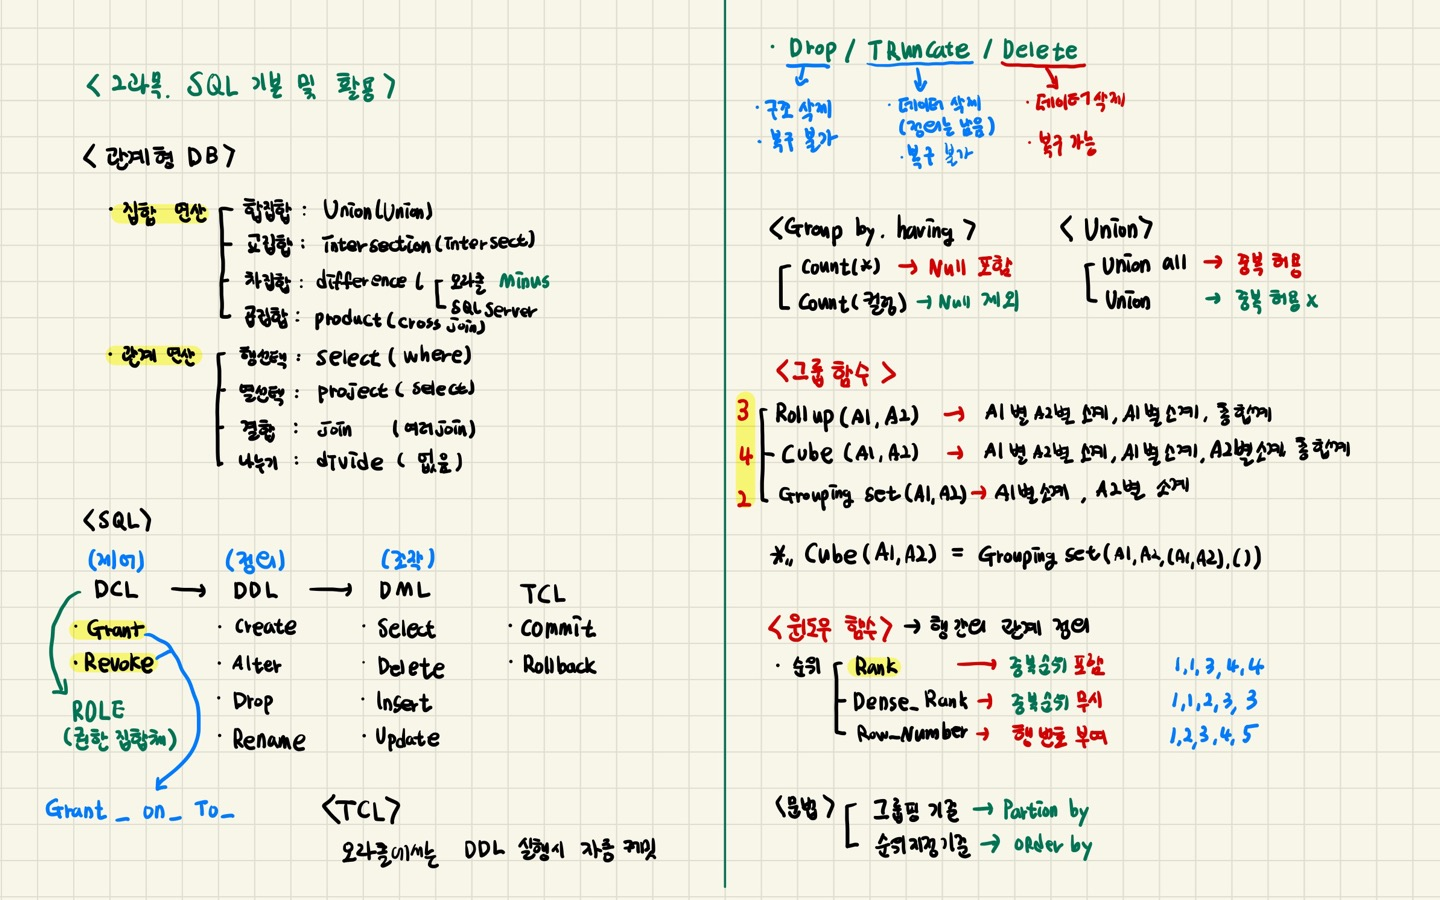 <2과목. SQL 기본 및 활용>
<관계형 DB>
· 집합 연산
합집합 : Union(Union)
교집합 : intersection(intersect)
차집합 : difference (오라클 Minus
SQL Server
곱집합 : product(cross join)
· 관계 연산
행선택 : select(where)
열선택 : project(select)
결합 : join (여러join)
나누기 : divide (없음)
<SQL>
(제어) (정의) (조작)
DCL → DDL → DML TCL
· Grant · Create · Select · commit
· Revoke · Alter · Delete · Rollback
· Drop · Insert
ROLE
(권한 집합체) · Rename · Update
Grant _ on_ To_
<TCL>
오라클에서는 DDL 실행시 자동 커밋
· Drop / TRuncate / Delete
· 구조 삭제 · 데이터 삭제 · 데이터 삭제
(정의는 남음)
· 복구 불가 · 복구 불가 · 복구 가능
<Group by. having> <Union>
Count(*) → Null 포함 Union all → 중복 허용
Count(컬럼) → Null 제외 Union → 중복 허용 x
<그룹 함수>
3 Roll up (A1, A2) → A1별 A2별 소계, A1별 소계, 총합계
4 Cube (A1, A2) → A1별 A2별 소계, A1별 소계, A2별 소계 총합계
2 Grouping set (A1, A2) → A1별 소계, A2별 소계
*,, Cube(A1, A2) = Grouping set(A1, A2, (A1, A2), ())
<윈도우 함수> → 행 간의 관계 정의
· 순위 Rank → 중복순위 포함 1,1,3,4,4
Dense_Rank → 중복순위 무시 1,1,2,3,3
Row_Number → 행 번호 부여 1,2,3,4,5
<문법> 그룹핑 기준 → Partion by
순위지정기준 → order by